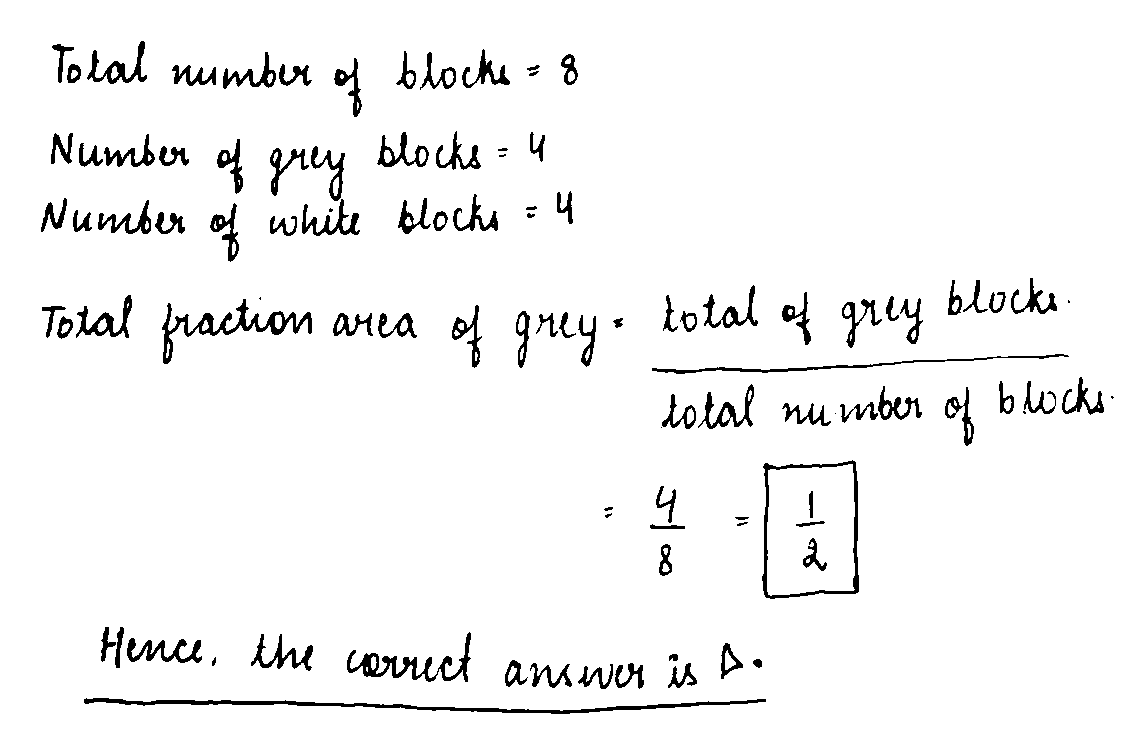 Total number of blocks = 8
Number of grey blocks = 4
Number of white blocks = 4
Total fraction area of grey = total of grey blocks.
total number of blocks.
= 4/8 = 1/2
Hence, the correct answer is D.